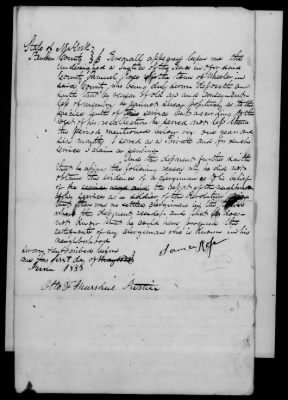 State of New York
Steuben County } ss Personally appeared before me the
undersigned a Justice of the Peace in & for said
County Samuel Rose of the town of Wheeler in
said County, who being duly sworn deposeth and
saith that by reason of old age and consequent
loss of memory he cannot swear positively as to the
precise length of his service but according to the
best of his recollection he served not less than
the period mentioned below in one year and
six months I served as a Private and for such
service I claim a pension
And this deponent further saith
that he
obtain the evidence of a clergyman as to belief
of the and the report of the neighbor
of his services as a soldier of the Revolution
that there was no clergyman in the
where the deponent resides and that he does
not know that he could now procure the
certificate of any clergyman who is known in his
neighborhood
Sworn & subscribed before
me this first day of
June 1833
Samuel Rose
Otto F Marshall Justice